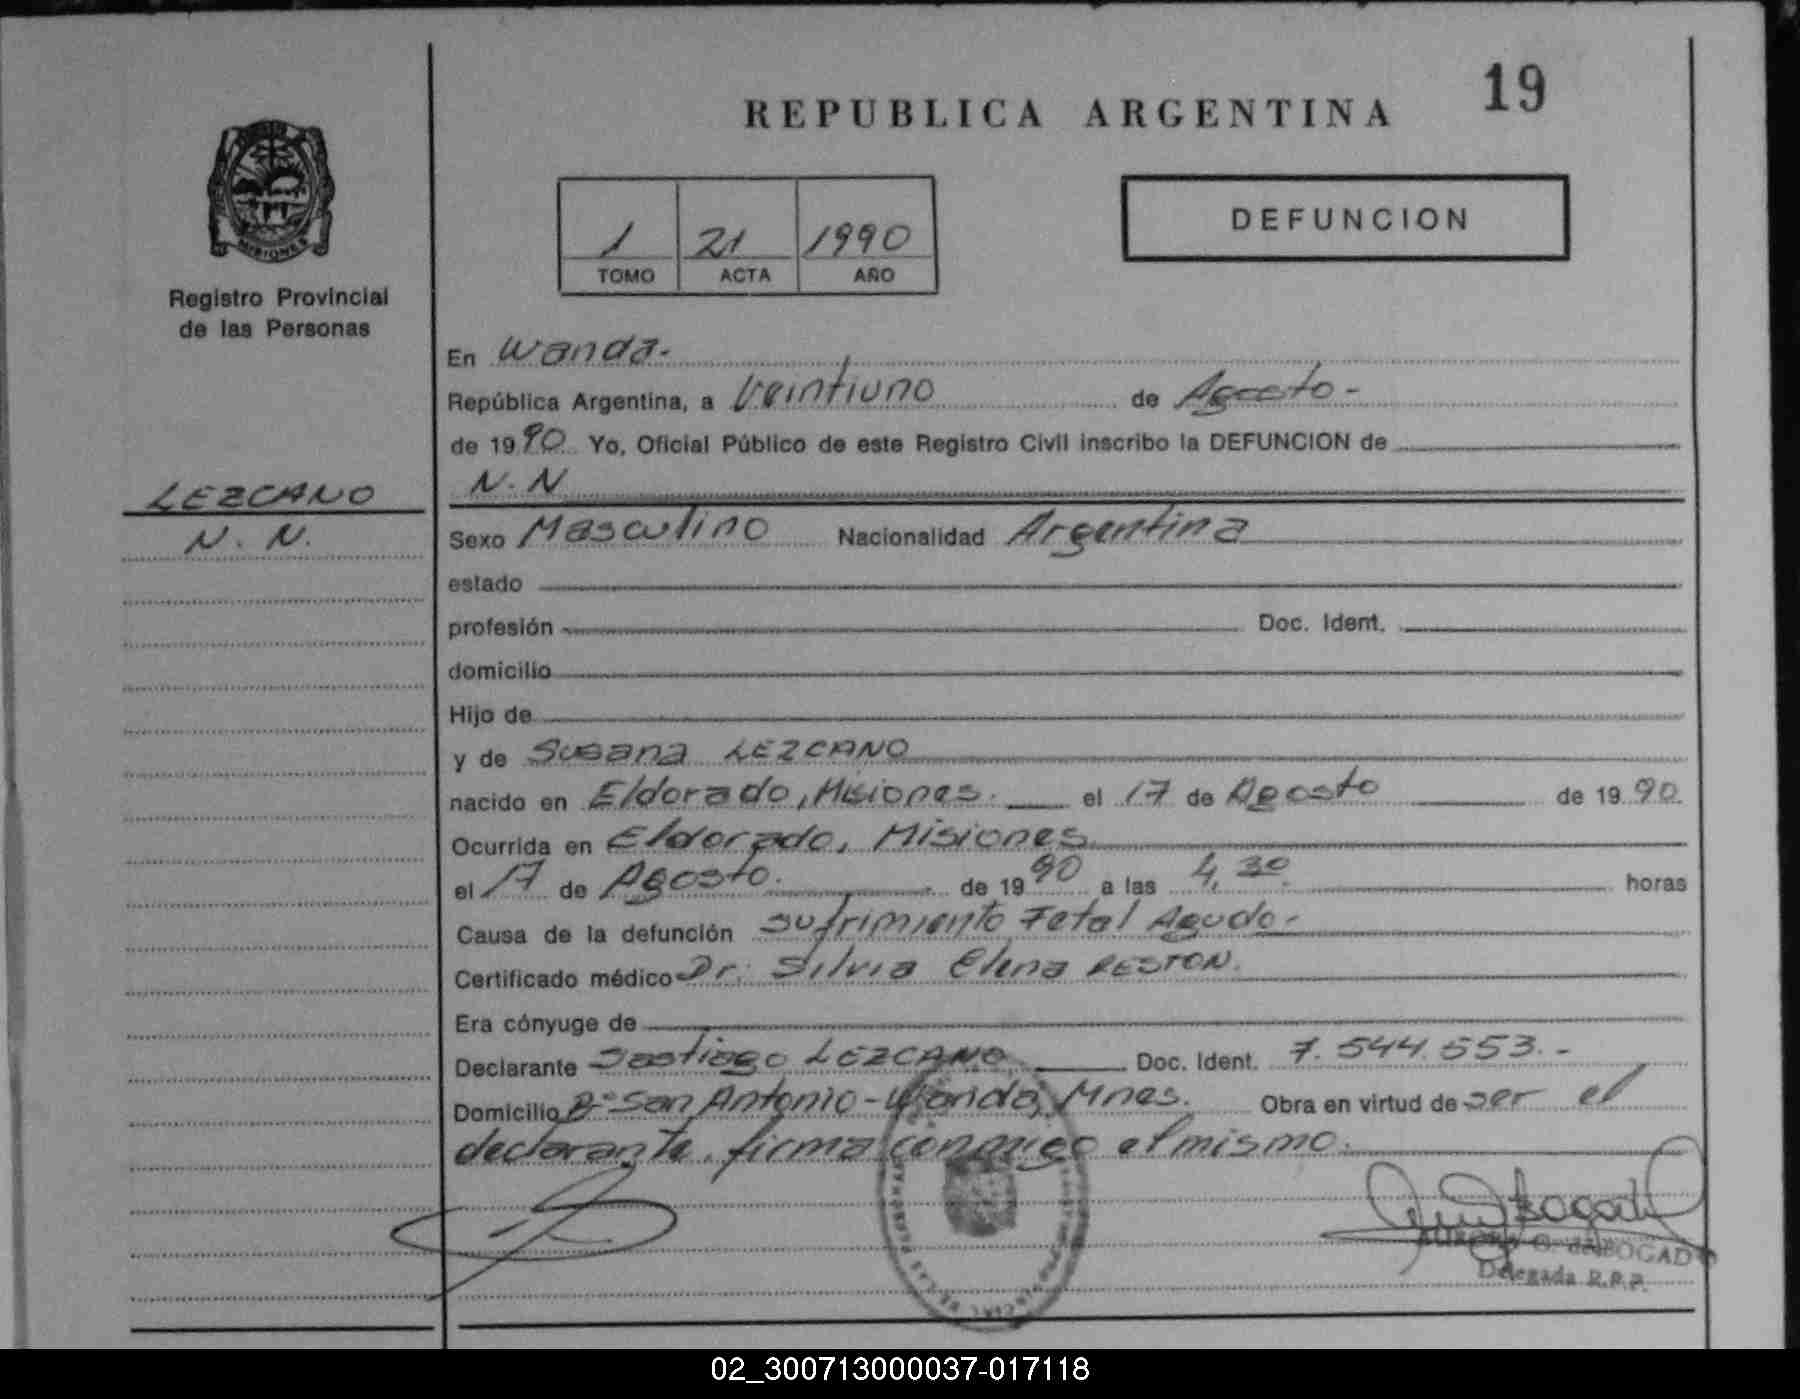 19
REPUBLICA ARGENTINA
MISIONES
Registro Provincial
de las Personas
1 21 1990
TOMO ACTA AÑO
DEFUNCION
En Wanda.-
República Argentina, a Veintiuno de Agosto.-
de 1990 Yo, Oficial Público de este Registro Civil inscribo la DEFUNCION de
LEZCANO
N. N.
N. N
Sexo Masculino Nacionalidad Argentina
estado
profesión Doc. Ident.
domicilio
Hijo de
y de Susana LEZCANO
nacido en Eldorado, Misiones. el 17 de Agosto de 1990.
Ocurrida en Eldorado, Misiones
el 17 de Agosto. de 1990 a las 4,30 horas
Causa de la defunción Sufrimiento Fetal Agudo.-
Certificado médico Dr. Silvia Elena RESTON.
Era cónyuge de
Declarante Santiago LEZCANO. Doc. Ident. 7.544.553.-
Domicilio Bº San Antonio-Wanda, Mnes. Obra en virtud de ser el
declarante. firma conmigo el mismo.
G. de BOGADO
Delegada R.P.P.
02_300713000037-017118